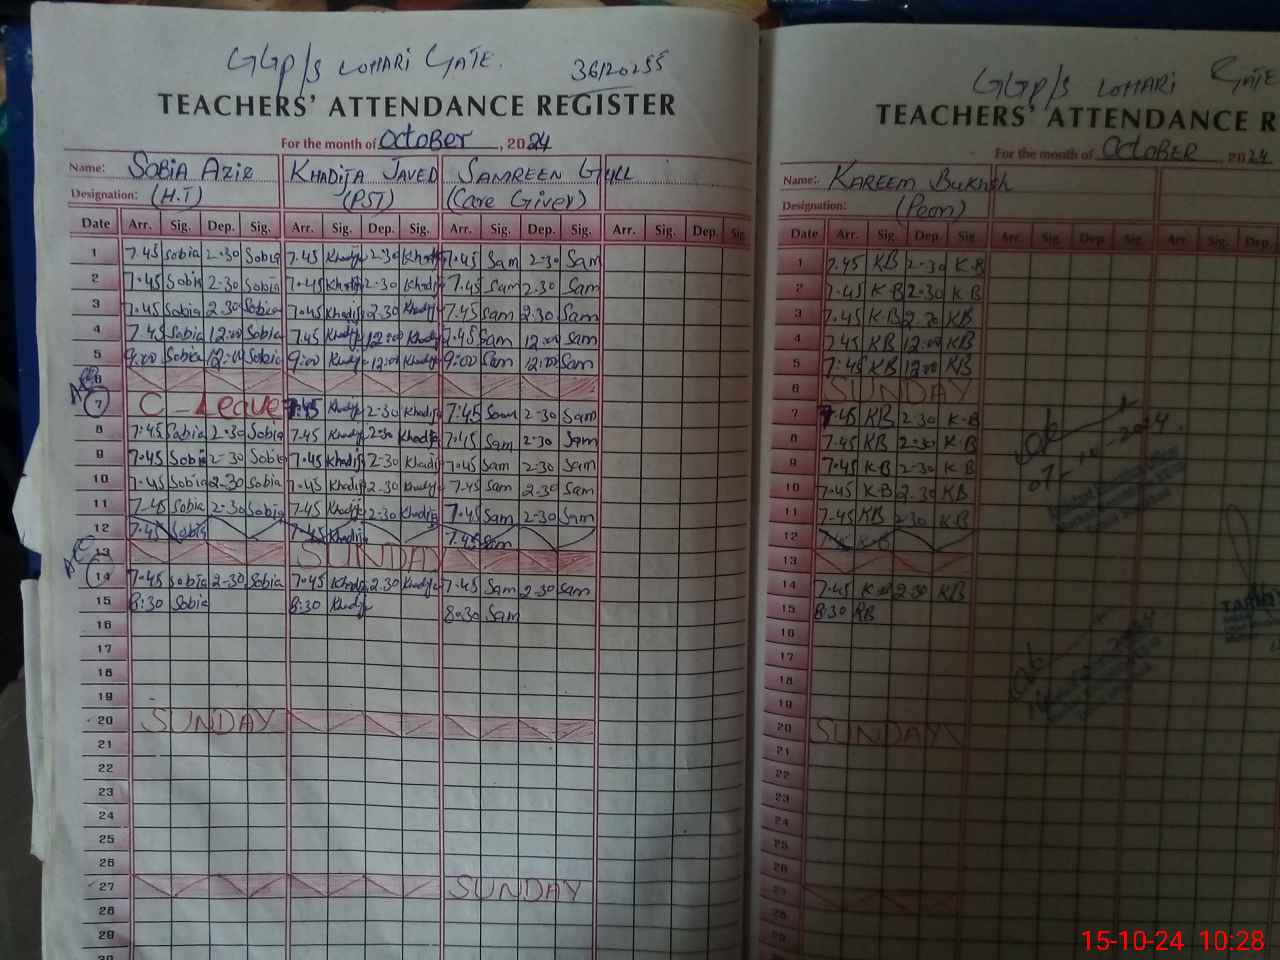 GGP/S LOHARI GATE. 36120255
TEACHERS' ATTENDANCE REGISTER
For the month of OCTOBER, 2024
Name: SOBIA AZIZ KHADIJA JAVED SAMREEN GULL
Designation: (H.T) (PST) (Care Giver)
Date Arr. Sig. Dep. Sig. Arr. Sig. Dep. Sig. Arr. Sig. Dep. Sig. Arr. Sig. Dep. Sig.
1 7.45 Sobia 2-30 Sobia 7.45 Khadija 2-30 Khadija 7.45 Sam 2-30 Sam
2 7.45 Sobia 2-30 Sobia 7.45 Khadija 2-30 Khadija 7.45 Sam 2.30 Sam
3 7.45 Sobia 2.30 Sobia 7.45 Khadija 2.30 Khadija 7.45 Sam 2.30 Sam
4 7.45 Sobia 12:00 Sobia 7.45 Khadija 12:00 Khadija 7.45 Sam 12:00 Sam
5 9:00 Sobia 12:00 Sobia 9:00 Khadija 12:00 Khadija 9:00 Sam 12:00 Sam
6
7 C-Leave 7:45 Khadija 2-30 Khadija 7:45 Sam 2-30 Sam
8 7:45 Sobia 2-30 Sobia 7.45 Khadija 2-30 Khadija 7.45 Sam 2-30 Sam
9 7.45 Sobia 2-30 Sobia 7.45 Khadija 2.30 Khadija 7.45 Sam 2.30 Sam
10 7.45 Sobia 2.30 Sobia 7.45 Khadija 2.30 Khadija 7.45 Sam 2.30 Sam
11 7.45 Sobia 2-30 Sobia 7.45 Khadija 2-30 Khadija 7.45 Sam 2-30 Sam
12 7.45 Sobia 7.45 Khadija 7.45 Sam
13 SUNDAY
14 7.45 Sobia 2-30 Sobia 7.45 Khadija 2.30 Khadija 7.45 Sam 2.30 Sam
15 8:30 Sobia 8:30 Khadija 8.30 Sam
16
17
18
19
20 SUNDAY
21
22
23
24
25
26
27 SUNDAY
28
29
30
GGP/S LOHARI GATE
TEACHERS' ATTENDANCE R
For the month of OCTOBER, 2024
Name: KAREEM Bukhsh
Designation: (Peon)
Date Arr. Sig. Dep. Sig. Arr. Sig. Dep. Sig. Arr. Sig. Dep.
1 7.45 KB 2-30 K.B
2 7.45 K.B 2-30 K.B
3 7.45 KB 2.30 KB
4 7.45 KB 12:00 KB
5 7:45 KB 12:00 KB
6 SUNDAY
7 7.45 KB 2.30 K.B
8 7.45 KB 2-30 K.B
9 7.45 KB 2-30 K.B
10 7.45 K.B 2.30 KB
11 7.45 KB 2.30 KB
12 7.45 K.B
13
14 7.45 K.B 2.30 KB
15 8:30 KB
16
17
18
19
20 SUNDAY
21
22
23
24
25
26
27
28
29
15-10-24 10:28